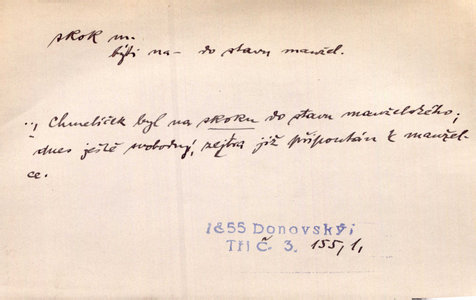 skok m.
býti na - do stavu manžel.
„, Chmelíček byl na skoku do stavu manželského;
dnes ještě svobodný, zejtra již připoután k manžel-
ce.
1855 Donovský:
Tři č. 3. 155, 1,